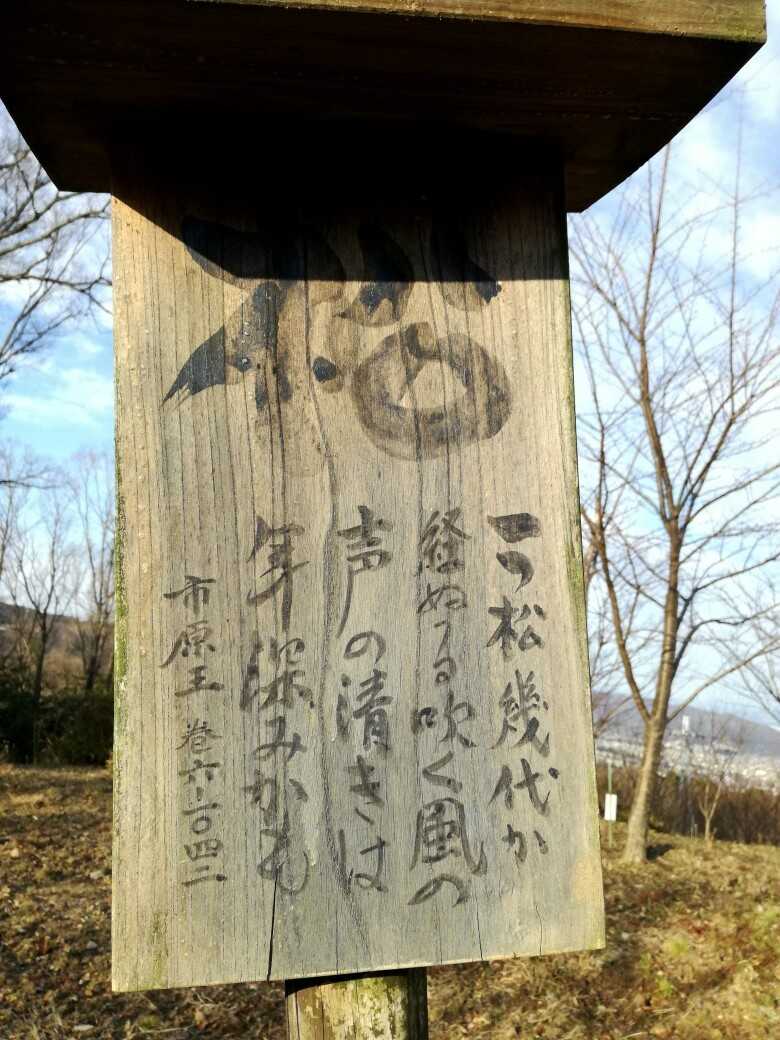 松
一つ松幾代か
経ぬる吹く風の
声の清きは
年深みかも
市原王 巻六-一〇四二